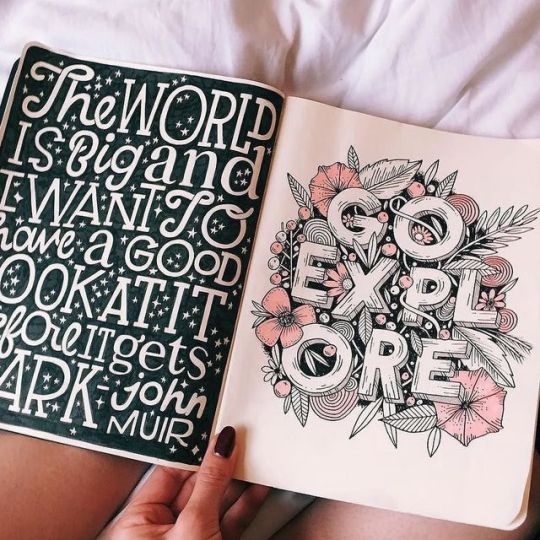 The WORLD
IS Big and
I WANT TO
have a GOOD
OOK AT IT
efore IT gets
ARK - John
MUIR
GO
EXPL
ORE